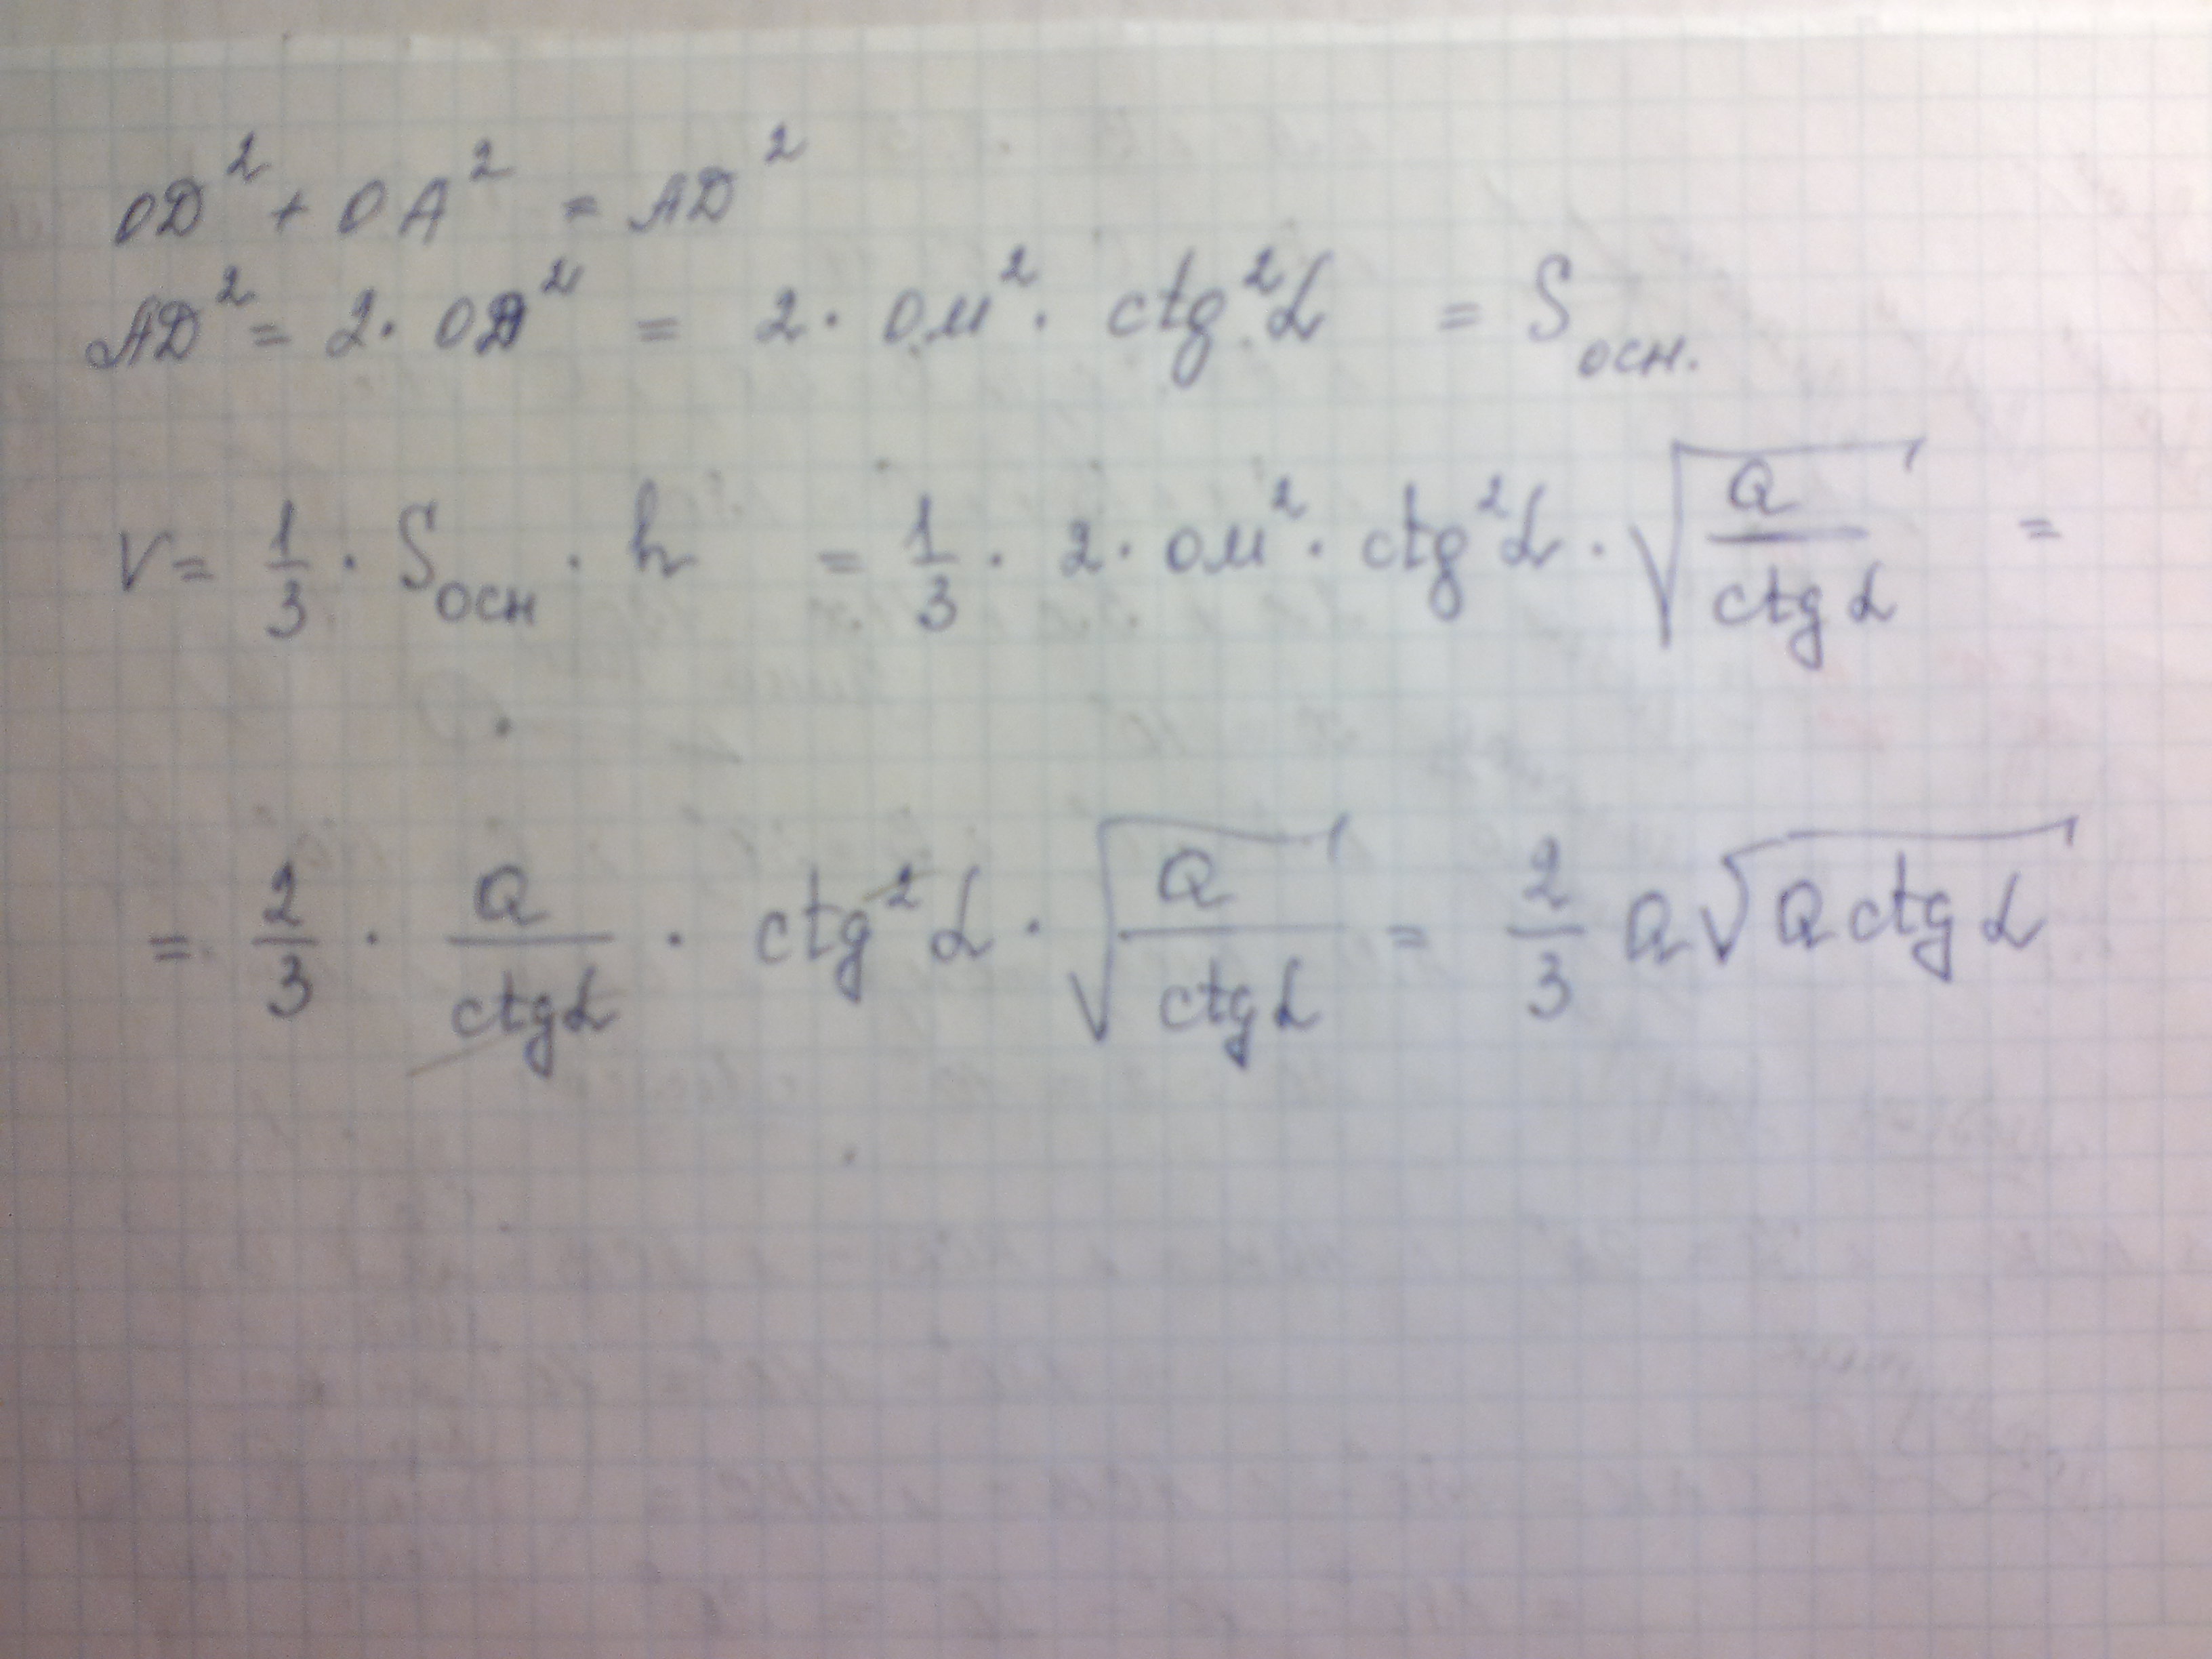 OD² + OA² = AD²
AD² = 2 · OD² = 2 · OM² · ctg²α = Sосн.
V = 1/3 · Sосн · h = 1/3 · 2 · OM² · ctg²α · √(Q/ctgα) =
= 2/3 · Q/ctgα · ctg²α · √(Q/ctgα) = 2/3 Q√(Q ctgα)